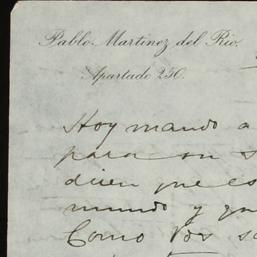 Pablo Martinez del Rio.
Apartado 250.
Hoy mando a
para su s
dicen que es
mundo y qu
Como Vds sa